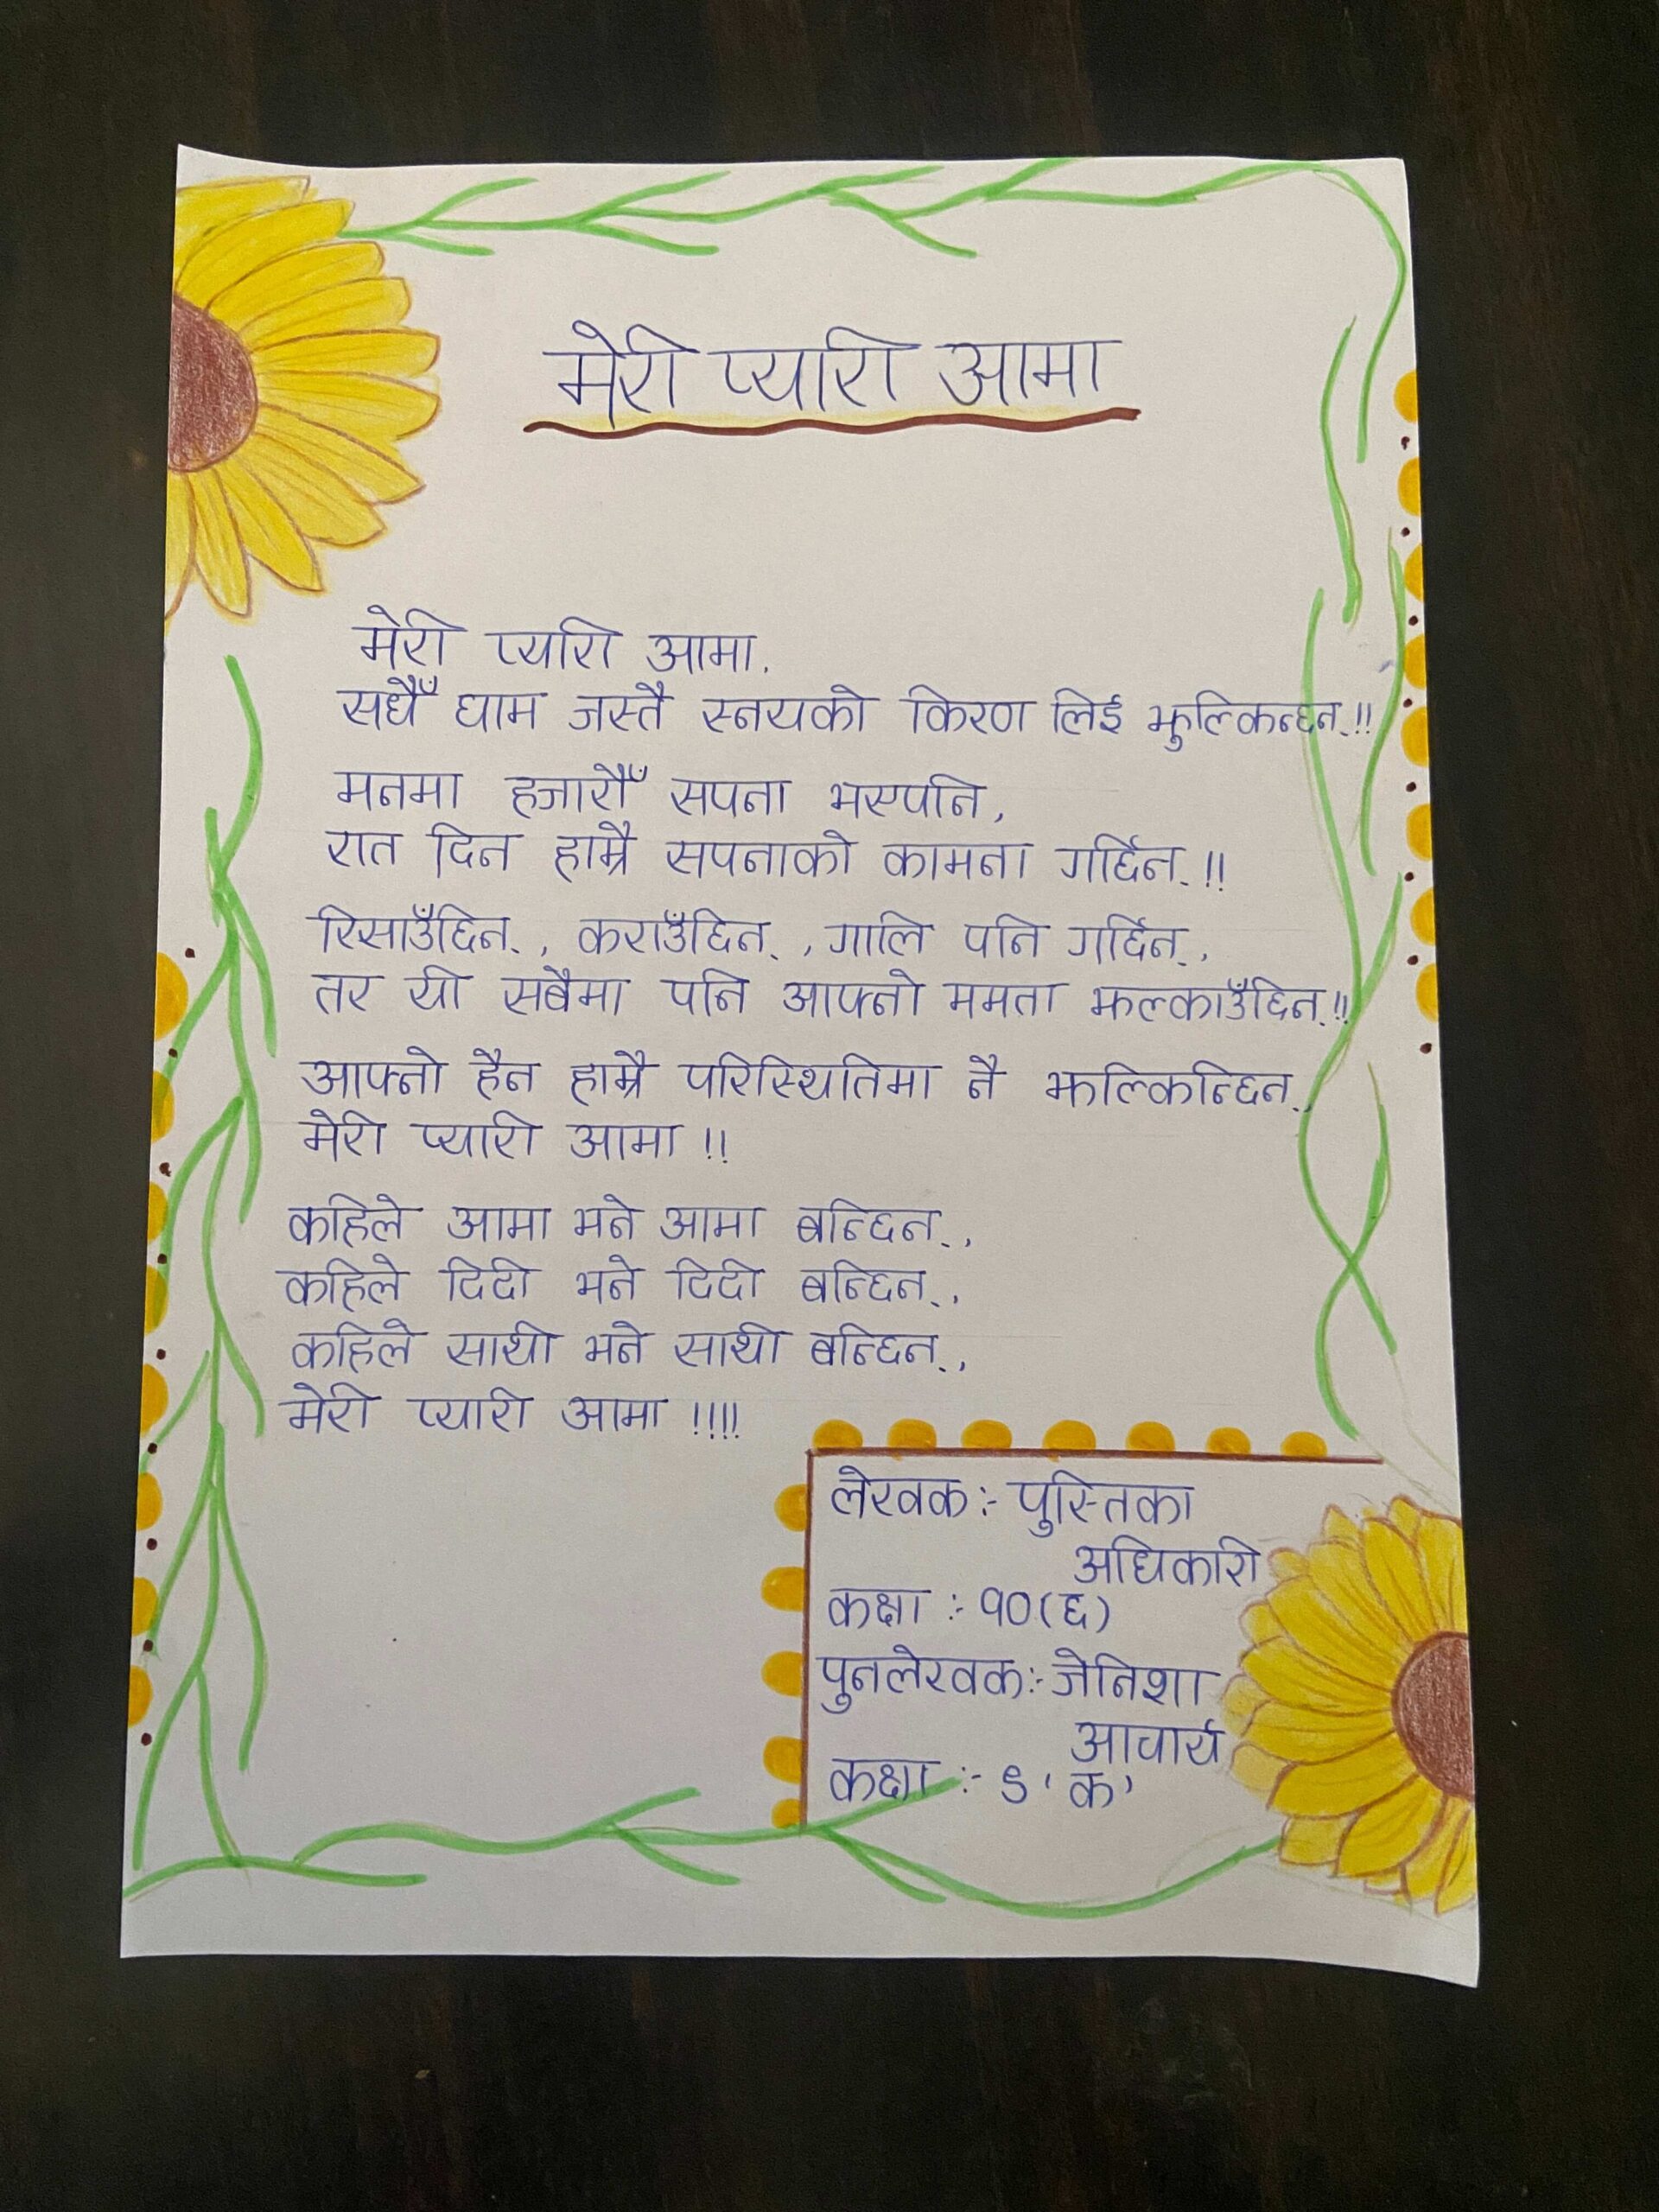 मेरी प्यारी आमा
मेरी प्यारी आमा.
सधैँ घाम जस्तै स्नयको किरण लिई झुल्किन्छन्.!!
मनमा हजारौँ सपना भएपनि,
रात दिन हाम्रै सपनाको कामना गर्दिन्.!!
रिसाउँदिन्., कराउँदिन्., गालि पनि गर्दिन्.,
तर यी सबैमा पनि आफ्नो ममता झल्काउँदिन्.!!
आफ्नो हैन हाम्रै परिस्थितिमा नै झल्किन्छिन्.,
मेरी प्यारी आमा !!
कहिले आमा भने आमा बन्छिन्.,
कहिले दिदी भने दिदी बन्छिन्.,
कहिले साथी भने साथी बन्छिन्.,
मेरी प्यारी आमा !!!!
लेखक:- पुस्तिका
अधिकारी
कक्षा :- १०(ध)
पुनलेखक:- जेनिशा
आचार्य
कक्षा :- ९ 'क'